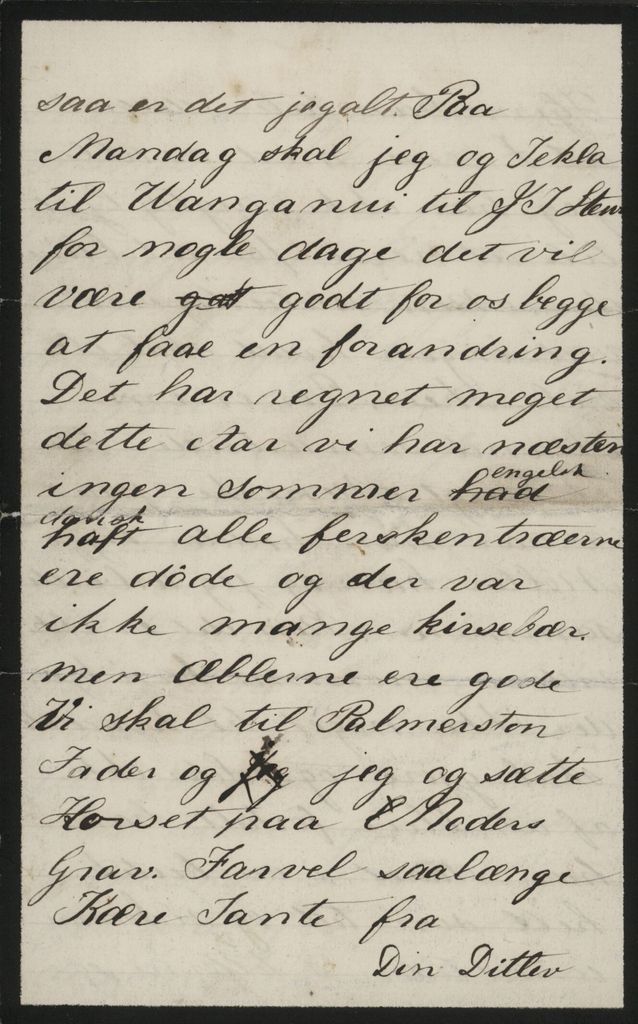 saa er det jegalt. Paa
Mandag skal jeg og Tekla
til Wanganui til J J Stew
for nogle dage det vil
være gat godt for os begge
at faae en forandring.
Det har regnet meget
dette Aar vi har næsten
engelsk
ingen sommer had
dansk
haft alle ferskentræerne
ere döde og der var
ikke mange kirsebær.
men Æblerne ere gode
Vi skal til Palmerston
Fader og jeg jeg og sætte
Korset paa Moders
Grav. Farvel saalænge
Kære Tante fra
Din Ditlev